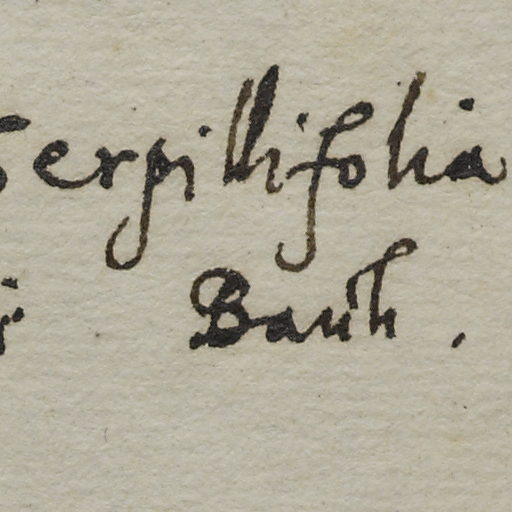 Serpillifolia
Bauh .